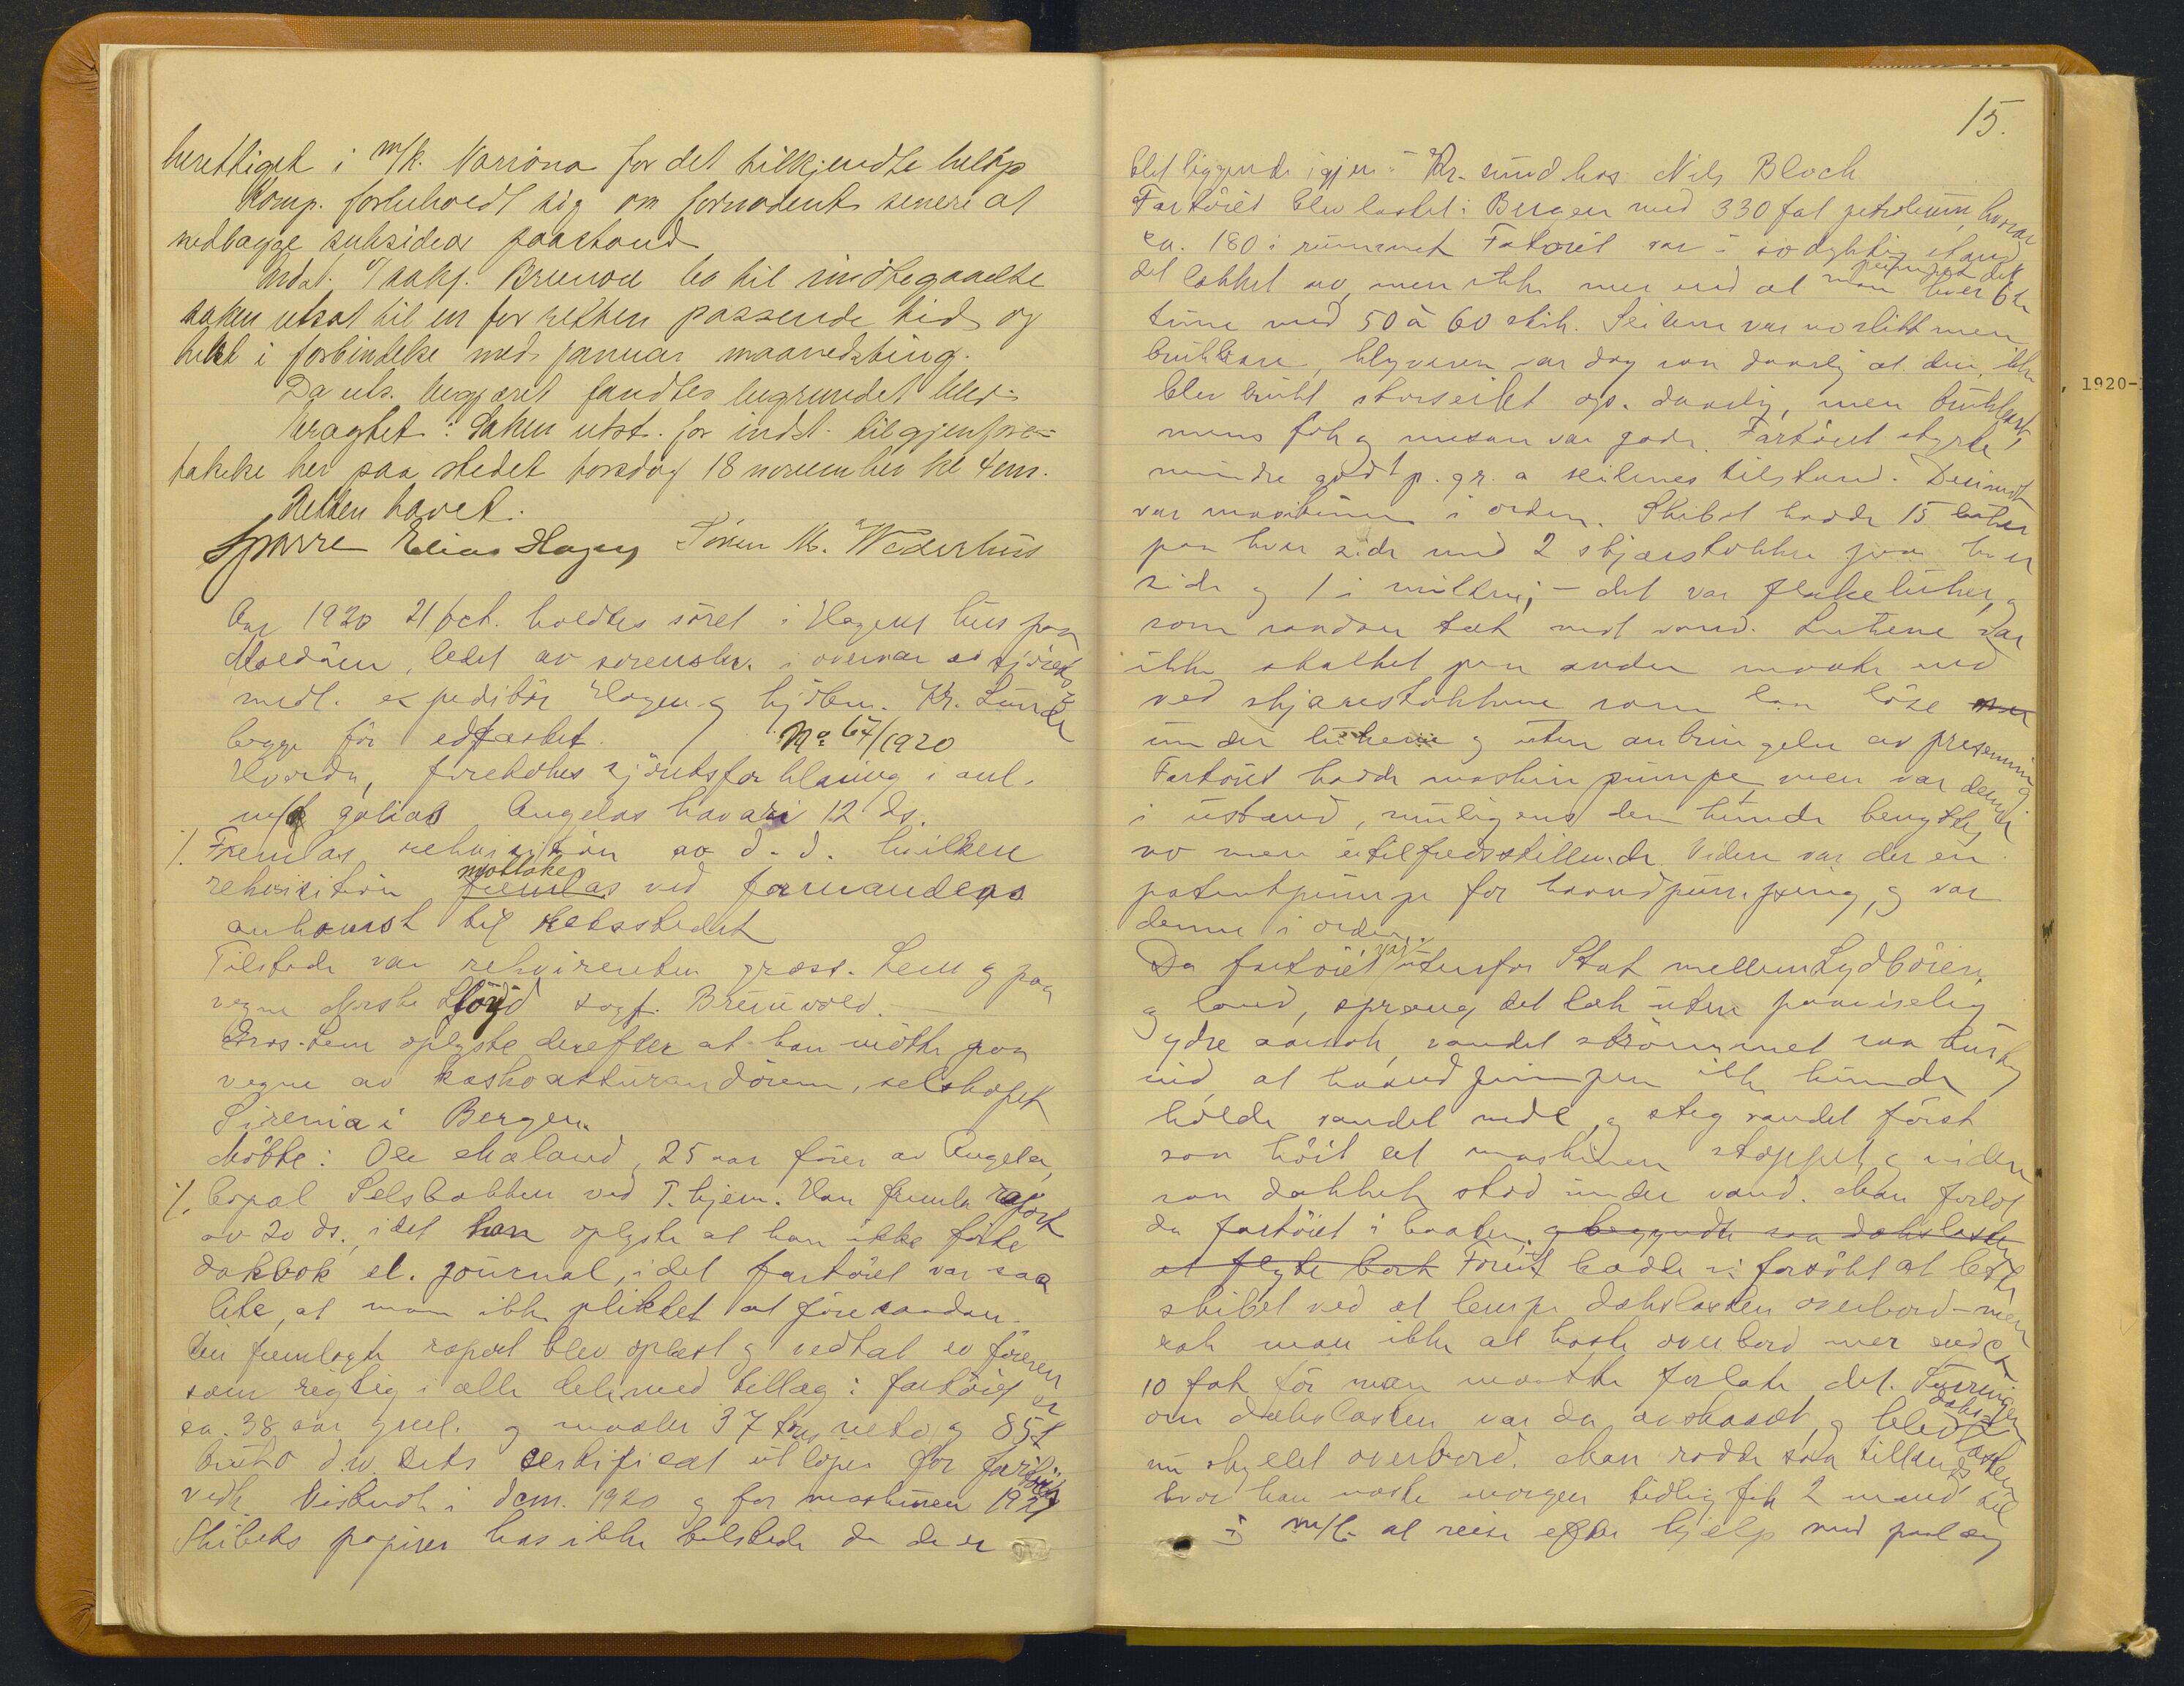 berettiget i m/k. Varriona for det tilkjendte beløp
Komp. forbeholdt sig om fornødent senere at
nedlægge subsidiær paastand
Indst. v/sakf. Brunvoll lot til indtegaaelse
saken utsat til en for retten passende tid og
helst i forbindelse med januar maanedsting.
Da uts. begjæret fandtes begrundet blev
bragtet: Saken utst. for indst. tilgjenfore-
takelse her paa stedet torsdag 18 november kl 4 em.
Retten hævet.
Sparre Elias Hagen Søren M. Wederhus
Aar 1920 21/oct. holdtes søret i Hagens hus paa
Moldøen, ledet av sorenskr. i overvær av sjørets
medl. expeditør Hagen og kjøbm. Kr. Lunde
begge før edfæstet.
No 64/1920
Hvorda, foretokes sjøretsforklaring i anl.
m/k galias Angelas havari 12 ds.
1/. Fremlas rekvisition av d. d. hvilken
rekvisition mottokes ved formandens
ankomst til retsstedet
Tilstede var rekvirenten gross. Lem og paa
vegne Norske Lloyd sagf. Brunvold.
Gros. Lem oplyste derefter at han møtte paa
vegne av kaskoassurandøren, selskapet
Sirenia i Bergen.
Møtte: Ole Mæland, 25 aar fører av Angela,
1/. bopæl Selsbakken ved T.hjem. Han fremla raport
av 20 ds., idet han oplyste at han ikke førte
dækbok el. journal, idet fartøiet var saa
lite, at man ikke pliktet at føre saadan.
Den fremlagte raport blev oplæst og vedtat av føreren
som rigtig i alle dele med tillæg: fartøiet er
ca. 38 aar gml. og maaler 37 tons netto og 85 t
brutto d.w. Dets certifikat utløper for fartøiets
vedk. i dcm. 1920 og for maskinen 1921
Skibets papirer has ikke tilstede da de er
15.
blet liggende igjen i Kr.sund hos Nils Bloch
Fartøiet blev lastet i Bergen med 330 fat petroleum, hvorav
ca. 180 i rummet Fartøiet var i sødygtig stand
det lækket av, men ikke mer end at man pumpet det hver 6te
time med 50 à 60 slah. Seilene var noslitt men
brukbare, klyveren var dog saa daarlig at den ikke
blev brukt storseilet ogs. daarlig, men brukbart,
mens fok og mesan var gode. Fartøiet styrte
mindre godt p. gr. a seilenes tilstand. Derimot
var maskinen i orden. Skibet hadde 15 luker
paa hver side med 2 skjærstokker paa hver
side og 1 i midten; - det var flake luker, og
som saadan tæt mot vand. Lukene var
ikke skalket paa anden maate end
ved skjærestokkene som laa løse
under lukene og uten anbringelse av presenning
Fartøiet hadde maskin pumpe, men var denne
i ustand, muligens den kunde benyttes
no men utilfredsstillende. Viden var der en
patentpumpe for haandpumping, og var
denne i orden.
Da fartøiet var utenfor Stat mellem Lydbøien
og land, sprang det læk uten paaviselig
ydre aarsak, vandet strømmet saa hurtig
ind, at haandpumpen ikke kunde
holde vandet nede, og steg vandet først
saa høit at maskinen stoppet, og siden
saa dækket stod under vand. Man forlot
da fartøiet i baaten. og begyndte saa dækslasten
at flyte bort Forut hadde vi forsøkt at lette
skibet ved at lempe dækslasten overbord - men
rak man ikke at kaste overbord mer end ca
10 fat før man maatte forlate det. Surringen
om dækslasten var da avskaaret, og blev dækslasten
nu skyllet overbord. Man rodde saa tillands,
hvor han næste morgen tidlig fik 2 mand til
i m/k at reise efter hjælp med paalæg